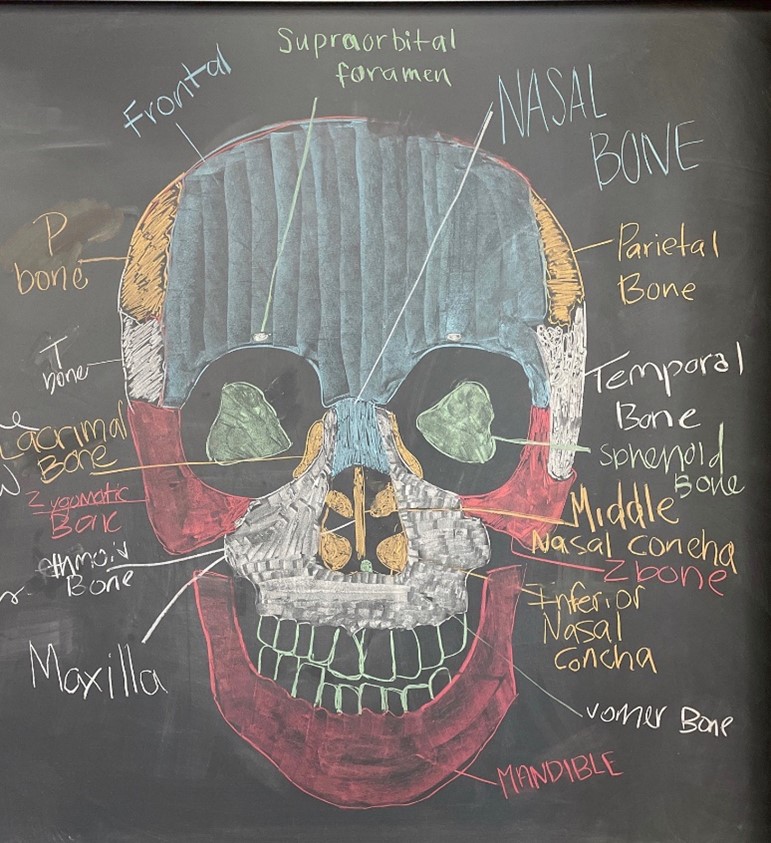 Supraorbital
foramen
Frontal
NASAL
BONE
P
bone
Parietal
Bone
T
bone
Temporal
Bone
Lacrimal
Bone
sphenoid
Bone
Zygomatic
Bone
Middle
Nasal Concha
Z bone
ethmoid
Bone
Inferior
Nasal
Concha
Maxilla
vomer Bone
MANDIBLE